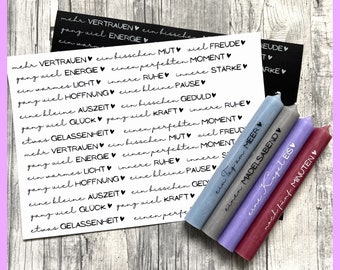 mehr VERTRAUEN ein bisschen MUT viel FREUDE
ganz viel ENERGIE einen perfekten MOMENT
ein warmes LICHT innere RUHE innere STÄRKE
ganz viel HOFFNUNG eine kleine PAUSE
eine kleine AUSZEIT ein bisschen GEDULD
ganz viel GLÜCK ganz viel KRAFT innere RUHE
etwas GELASSENHEIT einen perfekten MOMENT
mehr VERTRAUEN ein bisschen MUT viel FREUDE
ganz viel ENERGIE einen perfekten
ein warmes LICHT innere RUHE
ganz viel HOFFNUNG eine kleine
eine kleine AUSZEIT ein bisschen
ganz viel GLÜCK ganz viel KRAFT
etwas GELASSENHEIT einen perfekten
mehr VERTRAUEN ein bisschen MUT viel FREUDE
ganz viel ENERGIE MOMENT
ein warmes STÄRKE
ein Tag am MEER
einen MÄDELSABEND
eine Kugel EIS
noch fünf MINUTEN